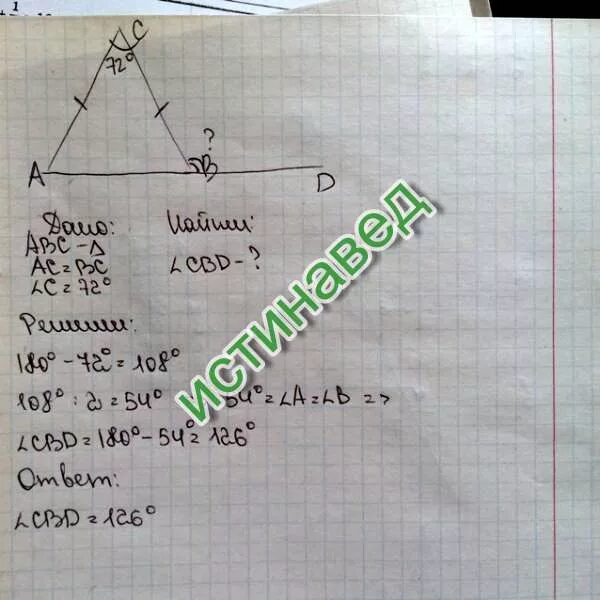 C
72°
?
A B D
Дано: Найти:
ABC - Δ
AC = BC ∠CBD - ?
∠C = 72°
Решение:
180° - 72° = 108°
108° : 2 = 54° 54° = ∠A = ∠B =>
∠CBD = 180° - 54° = 126°
Ответ:
∠CBD = 126°
истинавед